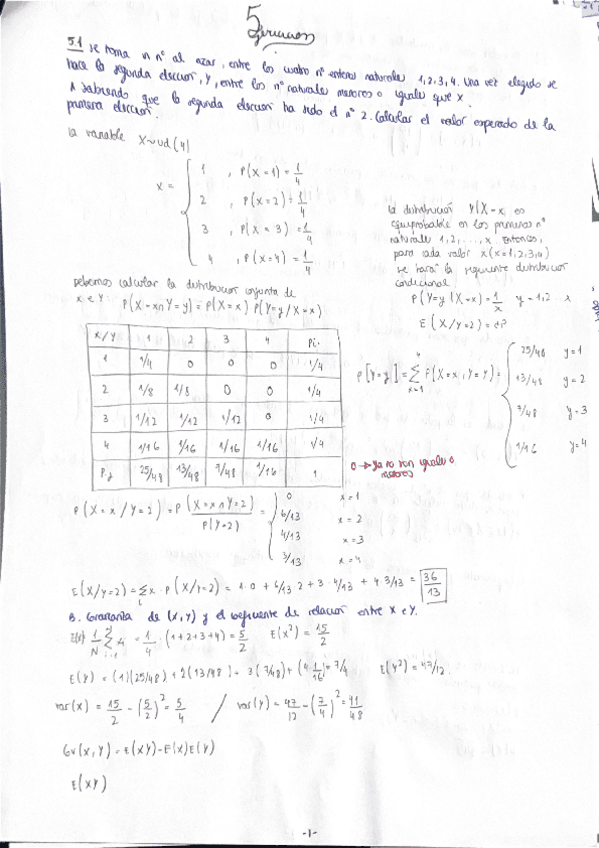 5
5.1 Se toma un nº al azar, entre los cuatro nº enteros naturales 1,2,3,4. Una vez elegido se
hace la segunda elección, Y, entre los nº naturales menores o iguales que X
A sabiendo que la segunda elección ha sido el nº 2. Calcular el valor esperado de la
primera elección.
La variable X~ud(4)
X =
1 , P(X=1)=1/4
2 , P(X=2)=1/4
3 , P(X=3)=1/4
4 , P(X=4)=1/4
La distribución Y|X=x, es
equiprobable en los primeros nº
naturales 1,2,...,x entonces,
para cada valor x(x=1,2,3,4)
se hará la siguiente distribución
condicional.
P(Y=y|X=x)=1/x y=1,2..x
E(X/Y=2)=
Debemos calcular la distribución conjunta de
X e Y. P(X=x∩Y=y)=P(X=x) P(Y=y/X=x)
X/Y 1 2 3 4 Pi.
1 1/4 0 0 0 1/4
2 1/8 1/8 0 0 1/4
3 1/12 1/12 1/12 0 1/4
4 1/16 1/16 1/16 1/16 1/4
P.j 25/48 13/48 7/48 1/16 1
P[Y=y]=∑ P(X=x, Y=y)=
x=1
25/48 y=1
13/48 y=2
7/48 y=3
1/16 y=4
0 → ya no son iguales o
menores
P(X=x/Y=2)=P(X=x∩Y=2)/P(Y=2)=
0 x=1
6/13 x=2
4/13 x=3
3/13 x=4
E(X/Y=2)=∑x·P(X/Y=2)=1·0+6/13·2+3·4/13+4·3/13=36/13
B. Covarianza de (X,Y) y el coeficiente de relación entre X e Y.
E(X) 1/N ∑ xi = 1/4·(1+2+3+4)=5/2 E(X²)=15/2
E(Y)=(1)(25/48)+2(13/48)+3(7/48)+(4·1/16)=7/4 E(Y²)=47/12
var(X)=15/2-(5/2)²=5/4 / var(Y)=47/12-(7/4)²=41/48
Cov(X,Y)=E(XY)-E(X)E(Y)
E(XY)
-1-